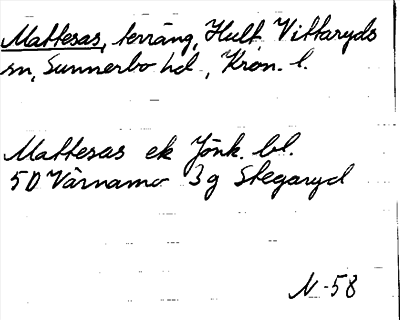 Mattesas, terräng, Hult Vittaryds
sn, Sunnerbo hd, Kron. l.
Mattesas ek Jönk. bl.
5D Värnamo 3g Stegaryd
N-58